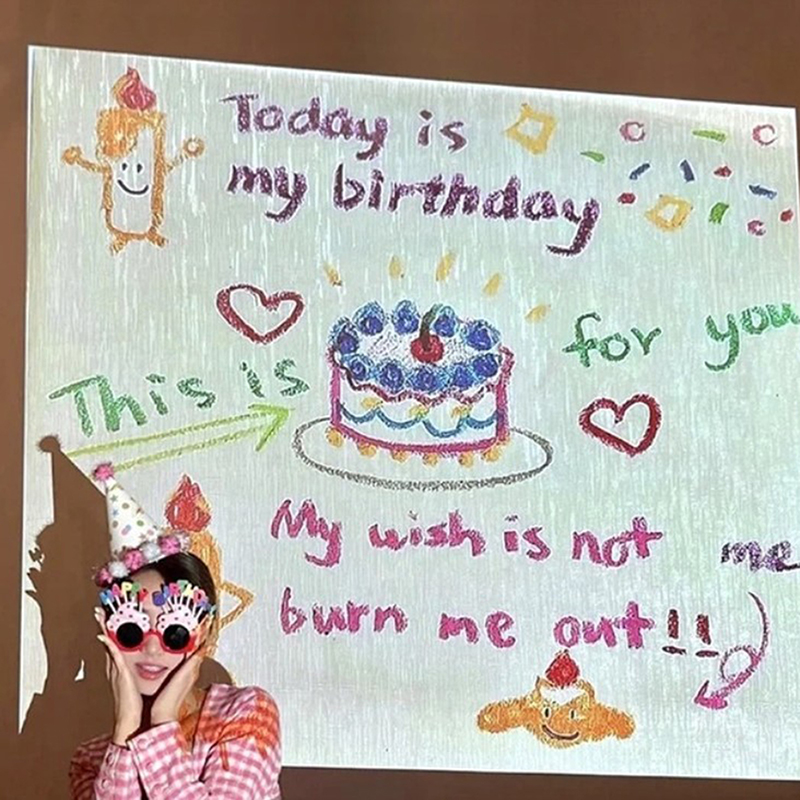 Today is
my birthday
for you
This is
My wish is not
me
burn me out!!
HAPPY BIRTHDAY